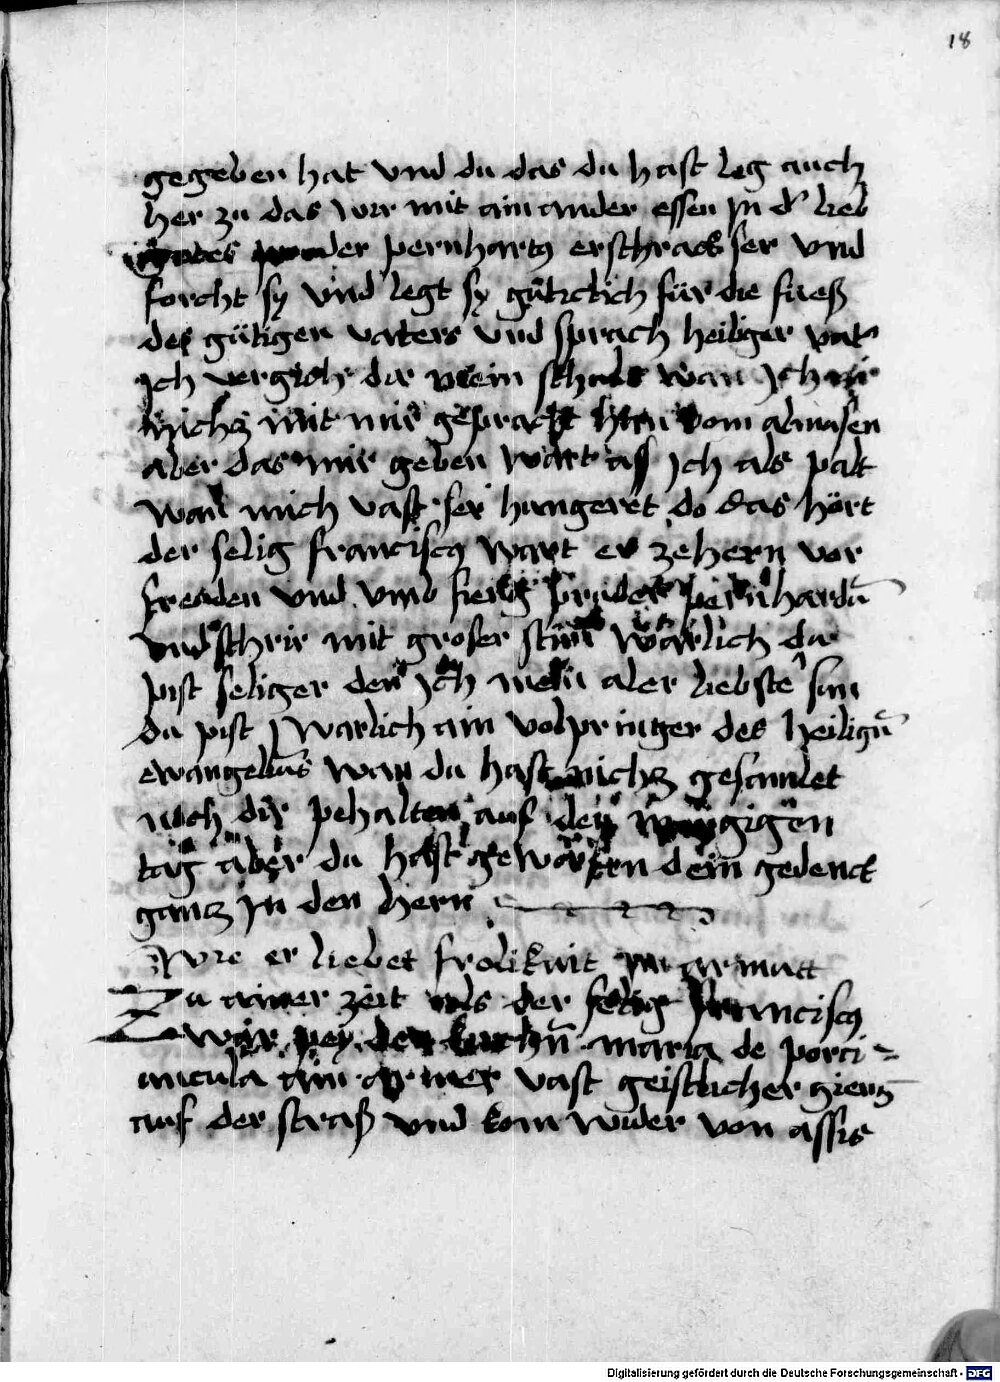 18
gegeben hat vnd du das du hast leg auch
her zu das wir mit ain ander essen jn d' lieb
gotes pruder pernhartq erschrack ser vnd
forcht sy vnd legt sy gütclich für die füeß
des gütigen vaters vnd sprach heiliger vat'
jch vergich dir mein schuld wan jch
nichz mit mir gepracht han vom almusen
aber das mir geben wart ass jch als palt
wan mich vast ser hungeret do das hört
der selig franciscq wart er zehern vor
freuden vnd vmb fieng pruder pernhardū
vnd schrir mit groser stim wärlich du
pist seliger den jch mein aler liebstē sun
du pist warlich ain volpringer des heilign̄
ewangeliūs wan du hast nichz gesamlet
noch dir pehalten auf den morgigen
tag aber du hast geworfen dein gedenck
gancz jn den hern
Wie er liebet frolikait jn armutt
Zu ainer zeit als der selig franciscq
war pey der kirchn̄ maria de porci=
uncula ain armer vast geistlicher gieng
auf der straß vnd kom wider von assis
Digitalisierung gefördert durch die Deutsche Forschungsgemeinschaft - DFG